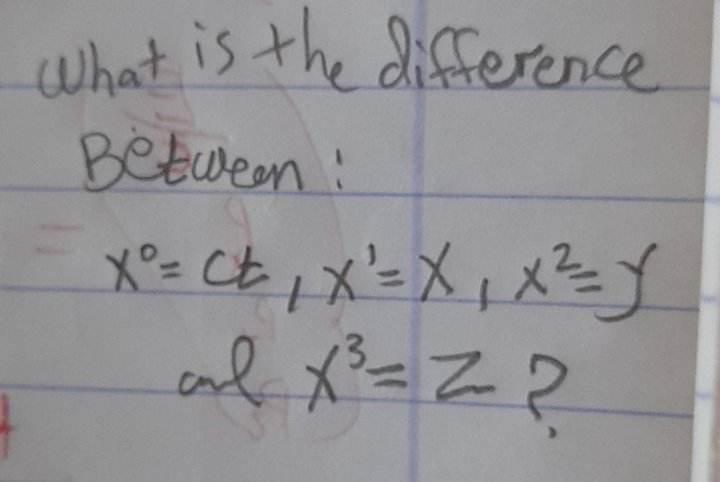 What is the difference
Between:
x⁰= ct, x¹= x, x²= y
and x³= z ?